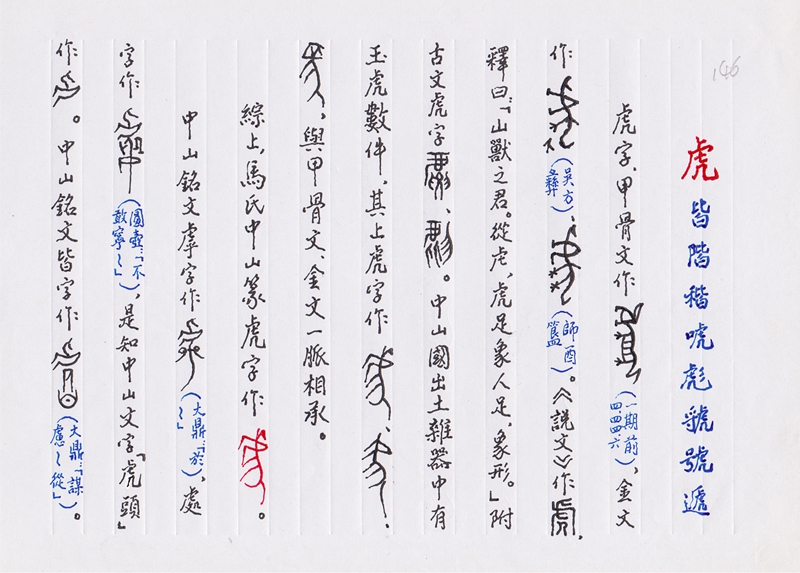 146
虎 皆階稭唬彪虢號遞
虎字,甲骨文作(一期前四.四四.六),金文
作(吳方彝)、(師酉簋)。《說文》作,
釋曰:「山獸之君。從虍,虎足象人足,象形。」附
古文虎字、。中山國出土雜器中有
玉虎數件,其上虎字作、、
,與甲骨文、金文一脈相承。
綜上,馬氏中山篆虎字作。
中山銘文虖字作(大鼎:「於~」),處
字作(圓壺「不敢寧~」),是知中山文字「虎頭」
作。中山銘文皆字作(大鼎:「謀慮~從」)。